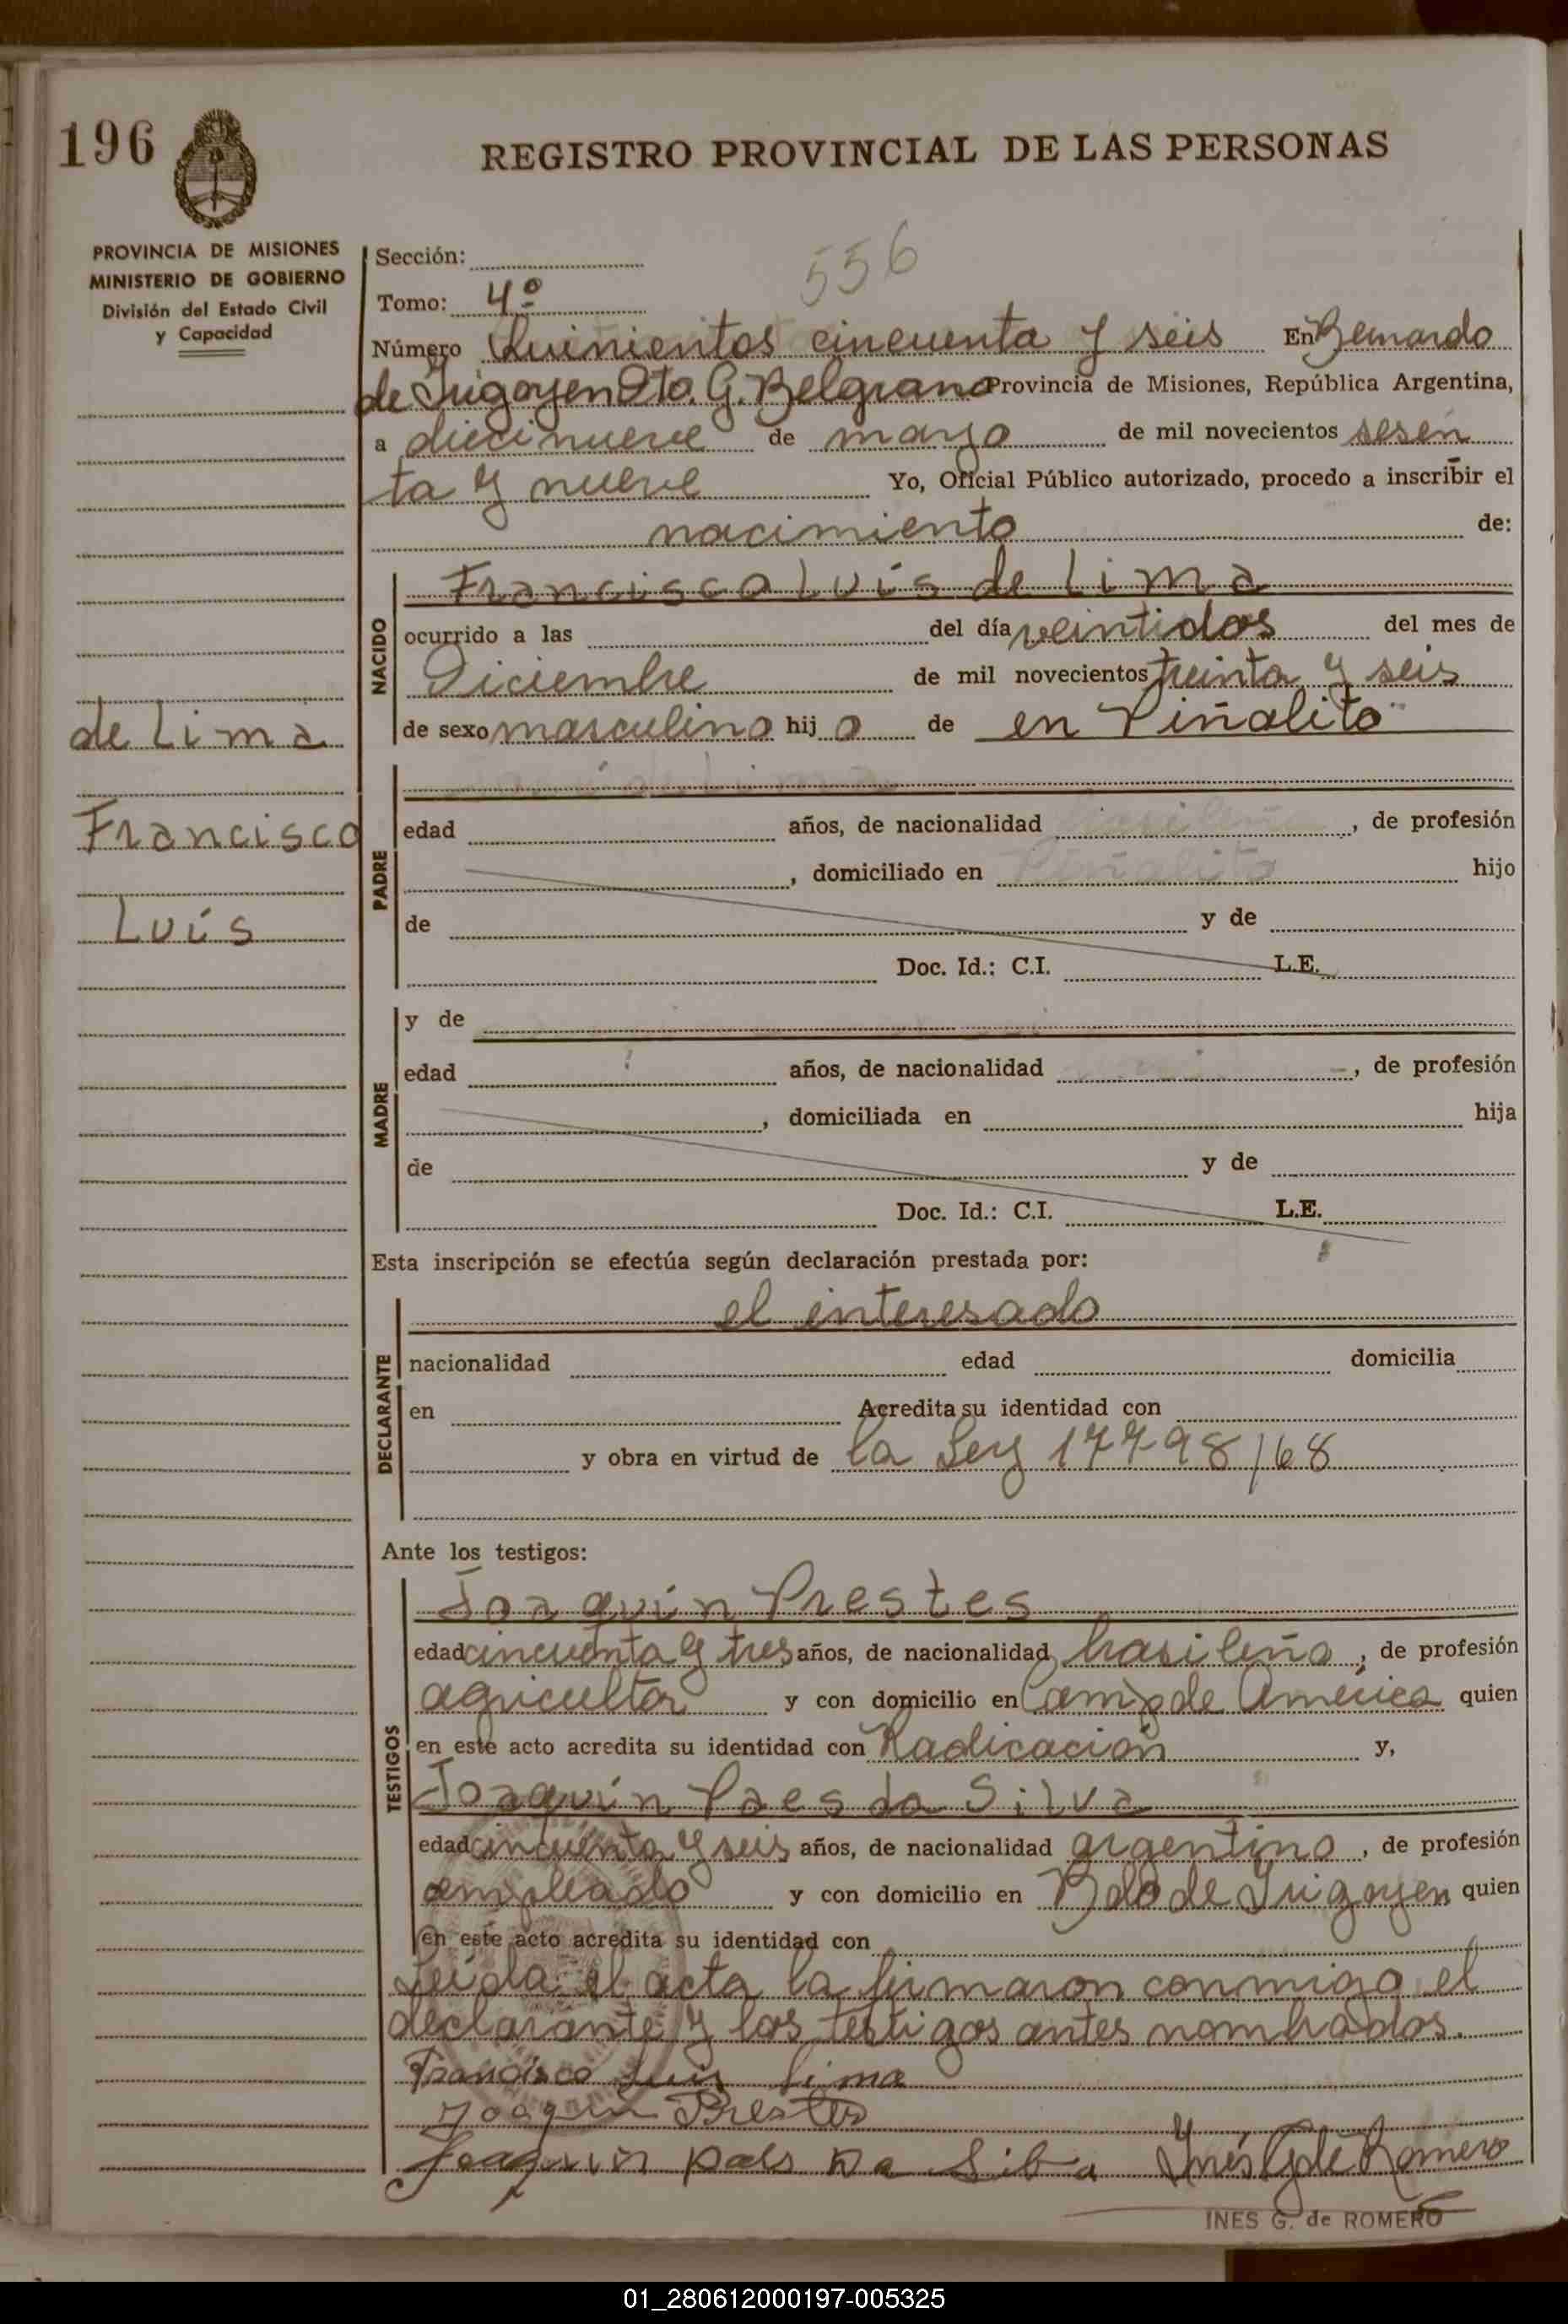 196
REGISTRO PROVINCIAL DE LAS PERSONAS
PROVINCIA DE MISIONES
MINISTERIO DE GOBIERNO
División del Estado Civil
y Capacidad
de Lima
Francisco
Luís
Sección:
556
Tomo: 4º
Número Quinientos cincuenta y seis En Bernardo
de Irigoyen Dto. G. Belgrano Provincia de Misiones, República Argentina,
a diecinueve de mayo de mil novecientos sesen
ta y nueve Yo, Oficial Público autorizado, procedo a inscribir el
nacimiento de:
NACIDO
Francisco Luís de Lima
ocurrido a las del día veintidos del mes de
Diciembre de mil novecientos treinta y seis
de sexo masculino hij o de en Piñalito
PADRE
edad años, de nacionalidad , de profesión
, domiciliado en Piñalito hijo
de y de
Doc. Id.: C.I. L.E.
MADRE
y de
edad años, de nacionalidad , de profesión
, domiciliada en hija
de y de
Doc. Id.: C.I. L.E.
Esta inscripción se efectúa según declaración prestada por:
DECLARANTE
el interesado
nacionalidad edad domicilia
en Acredita su identidad con
y obra en virtud de la Ley 17798/68
Ante los testigos:
TESTIGOS
Joaquín Prestes
edad cincuenta y tres años, de nacionalidad brasileño, de profesión
agricultor y con domicilio en Camp de America quien
en este acto acredita su identidad con Radicación y,
Joaquín Paes da Silva
edad cincuenta y seis años, de nacionalidad argentino, de profesión
empleado y con domicilio en Bdo de Irigoyen quien
en este acto acredita su identidad con
Leída el acta la firmaron conmigo el
declarante y los testigos antes nombrados.
Francisco Luis Lima
Joaquin Prestes
Joaquin paes Da Silva Inés G de Romero
INES G. de ROMERO
01_280612000197-005325